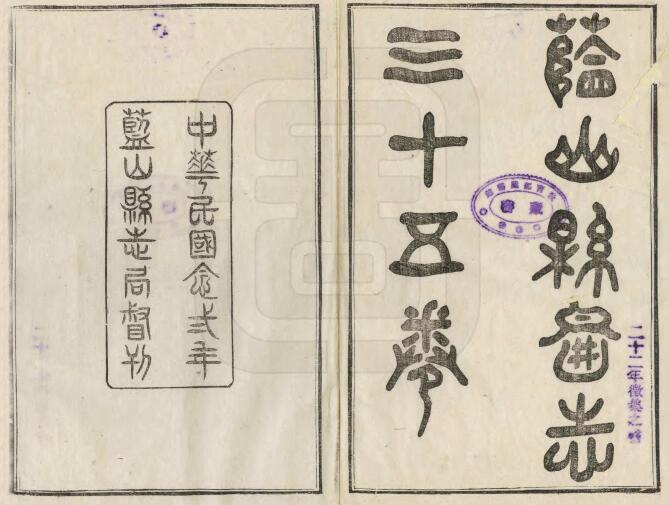 藍山縣圖志
三十五卷
中華民國念弍年
藍山縣志局督刊
藏書
二十二年徵集之書